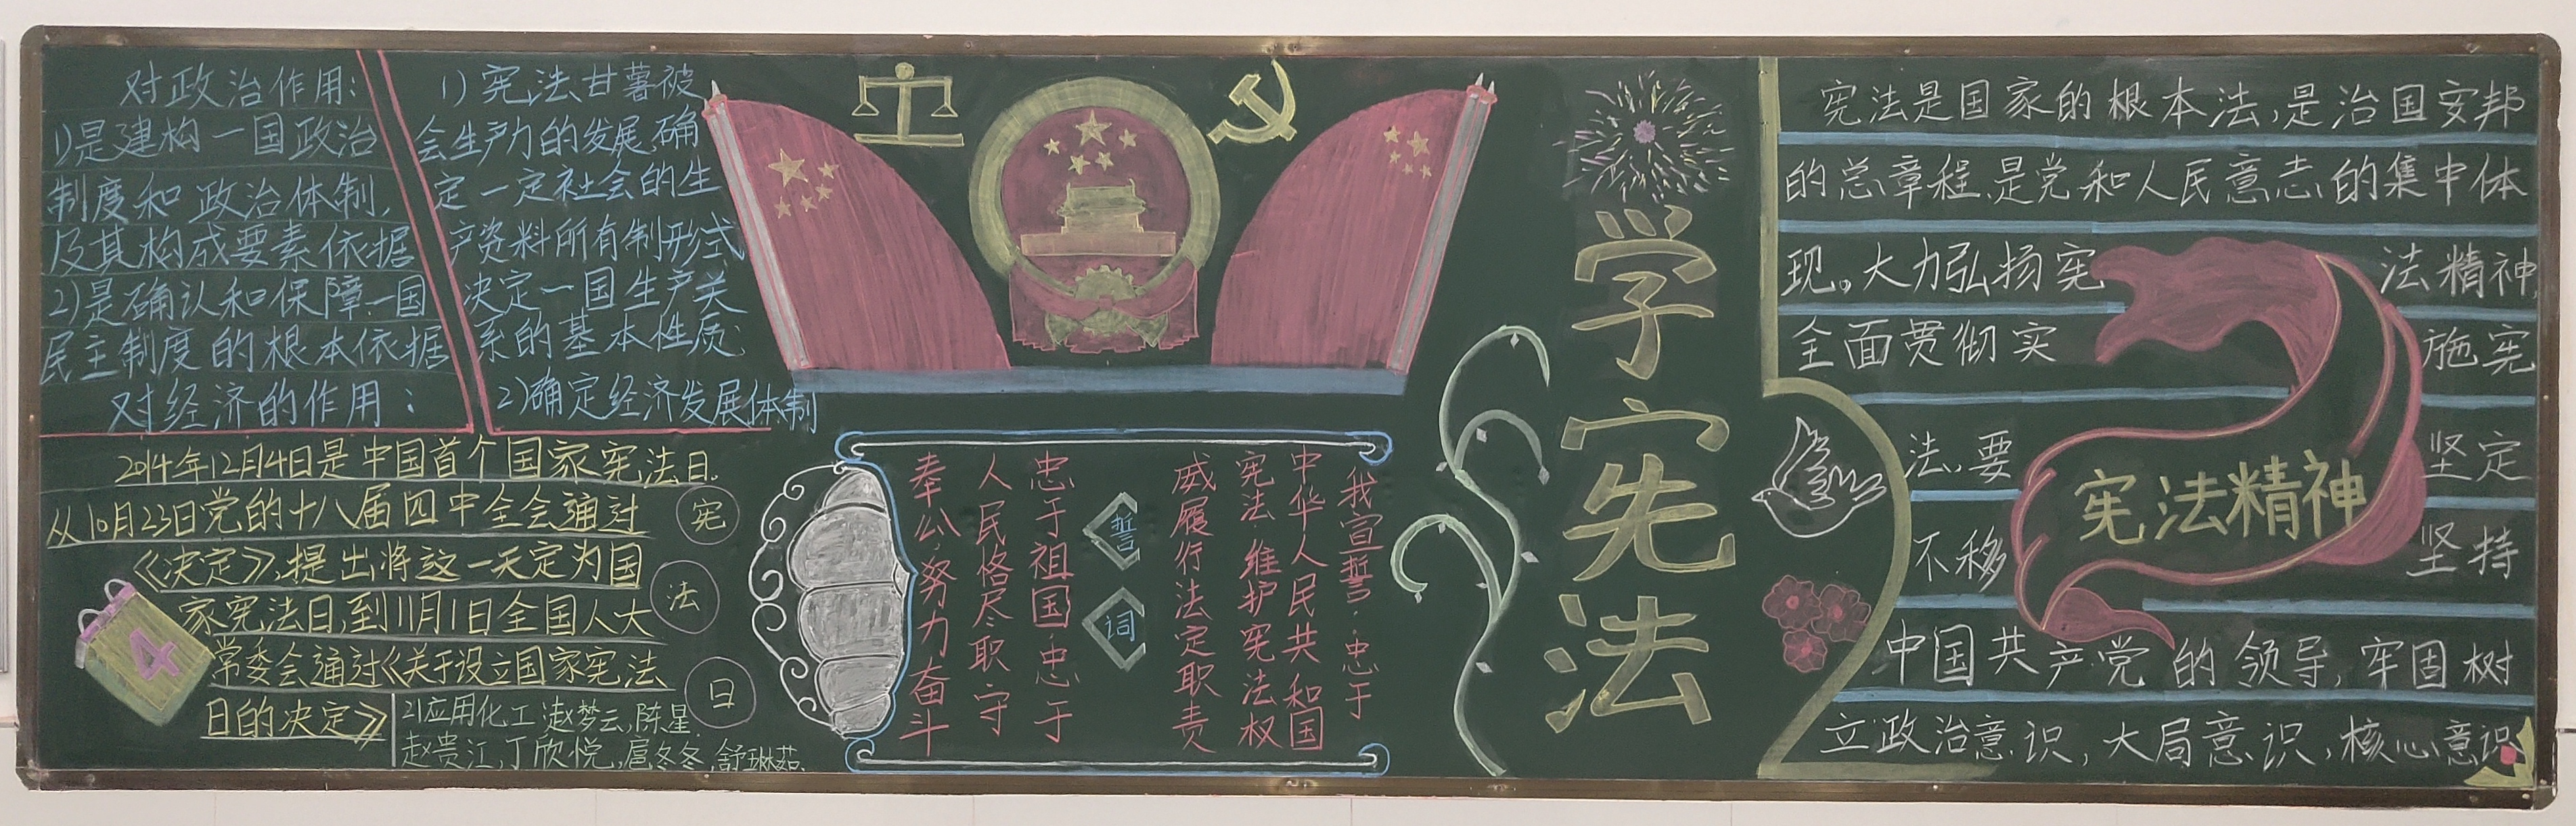 对政治作用：
1)是建构一国政治
制度和政治体制,
及其构成要素依据
2)是确认和保障一国
民主制度的根本依据
对经济的作用：
1)宪法甘薯被
会生产力的发展,确
定一定社会的生
产资料所有制形式
决定一国生产关
系的基本性质
2)确定经济发展体制
2014年12月4日是中国首个国家宪法日.
从10月23日党的十八届四中全会通过
《决定》,提出将这一天定为国
家宪法日,到11月1日全国人大
常委会通过《关于设立国家宪法
日的决定》
宪
法
日
4
21应用化工 赵梦云,陈星
赵贵江,丁欣悦,扈冬冬,舒琳茹.
我宣誓·忠于
中华人民共和国
宪法 维护宪法权
威履行法定职责
誓
词
忠于祖国·忠于
人民恪尽职守
奉公·努力奋斗
学宪法
宪法是国家的根本法,是治国安邦
的总章程,是党和人民意志的集中体
现。大力弘扬宪法精神,
全面贯彻实施宪
法,要坚定
不移坚持
中国共产党的领导,牢固树
立政治意识,大局意识,核心意识
宪法精神